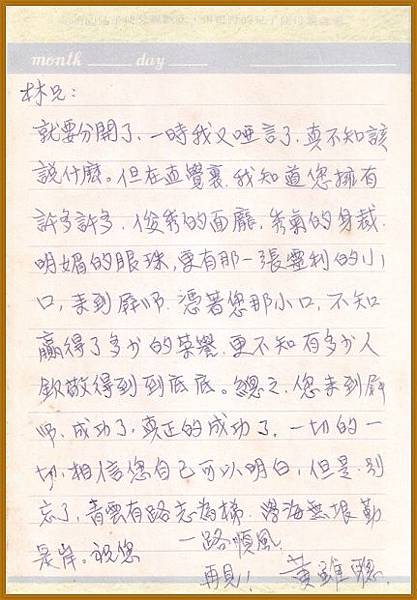 month day
林兄:
就要分開了、一時我又啞言了、真不知該
說什麼。但在直覺裏、我知道您擁有
許多許多、俊秀的面龐、秀氣的身裁、
明媚的眼珠、更有那一張靈利的小
口、來到屏師、憑著您那小口、不知
贏得了多少的榮譽、更不知有多少人
欽敬得到到底底。總之、您來到屏
師、成功了、真正的成功了、一切的一
切、相信您自己可以明白、但是、別
忘了、青雲有路志為梯、學海無垠勤
是岸。祝您 一路順風
再見! 黃雄聰